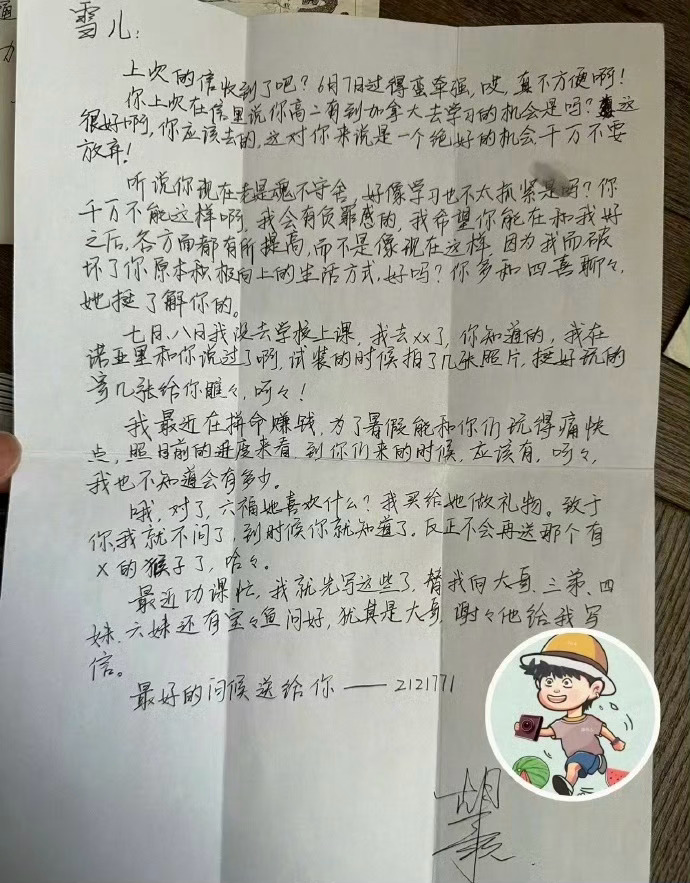 雪儿：
上次的信收到了吧？6月7日过得蛮牵强，哎，真不方便啊！
你上次在信里说你高二有到加拿大去学习的机会是吗？这
很好啊，你应该去的，这对你来说是一个绝好的机会，千万不要
放弃！
听说你现在老是魂不守舍，好像学习也不太抓紧是吗？你
千万不能这样啊，我会有负罪感的，我希望你能在和我好
之后，各方面都有所提高，而不是像现在这样，因为我而破
坏了你原本积极向上的生活方式，好吗？你多和四喜聊々，
她挺了解你的。
七月、八月我没去学校上课，我去xx了，你知道的，我在
诺亚里和你说过了啊，试装的时候拍了几张照片，挺好玩的
寄几张给你瞧々，呵々！
我最近在拼命赚钱，为了暑假能和你们玩得痛快
点，照目前的进度来看，到你们来的时候，应该有，呵々，
我也不知道会有多少。
哦，对了，六福她喜欢什么？我买给她做礼物。致于
你我就不问了，到时候你就知道了。反正不会再送那个有
X的猴子了，哈々。
最近功课忙，我就先写这些了，替我向大哥、三弟、四
妹、六妹还有宝々鱼问好，犹其是大哥，谢々他给我写
信。
最好的问候送给你——2121771
胡